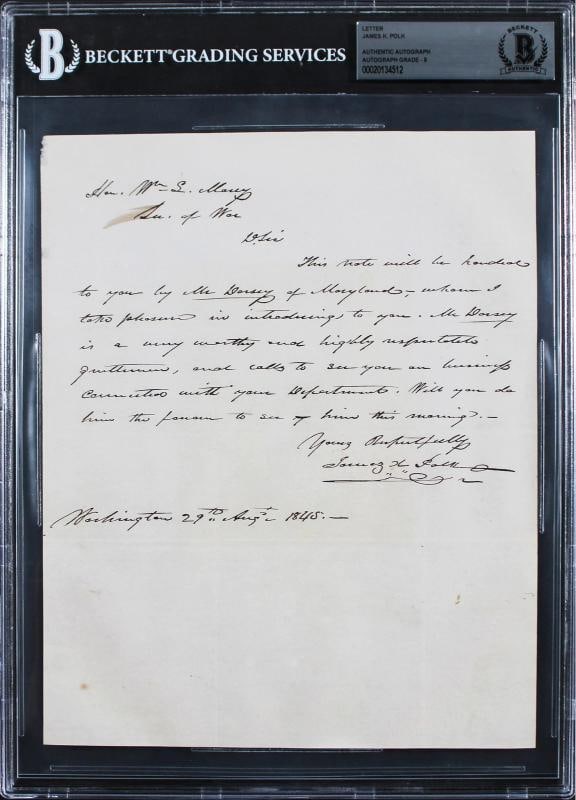 BECKETT® GRADING SERVICES
LETTER
JAMES K. POLK
AUTHENTIC AUTOGRAPH
AUTOGRAPH GRADE - 8
00020134512
BECKETT
B
AUTHENTIC
B
Hon. Wm L. Marcy
Sec. of War
D. Sir
This note will be handed
to you by Mr Dorsey of Maryland, whom I
take pleasure in introducing to you. Mr Dorsey
is a very worthy and highly respectable
gentleman, and calls to see you on business
connected with your Department. Will you do
him the favour to see him this morning. —
Yours Respectfully
James K. Polk
Washington 29th Augt 1845. —